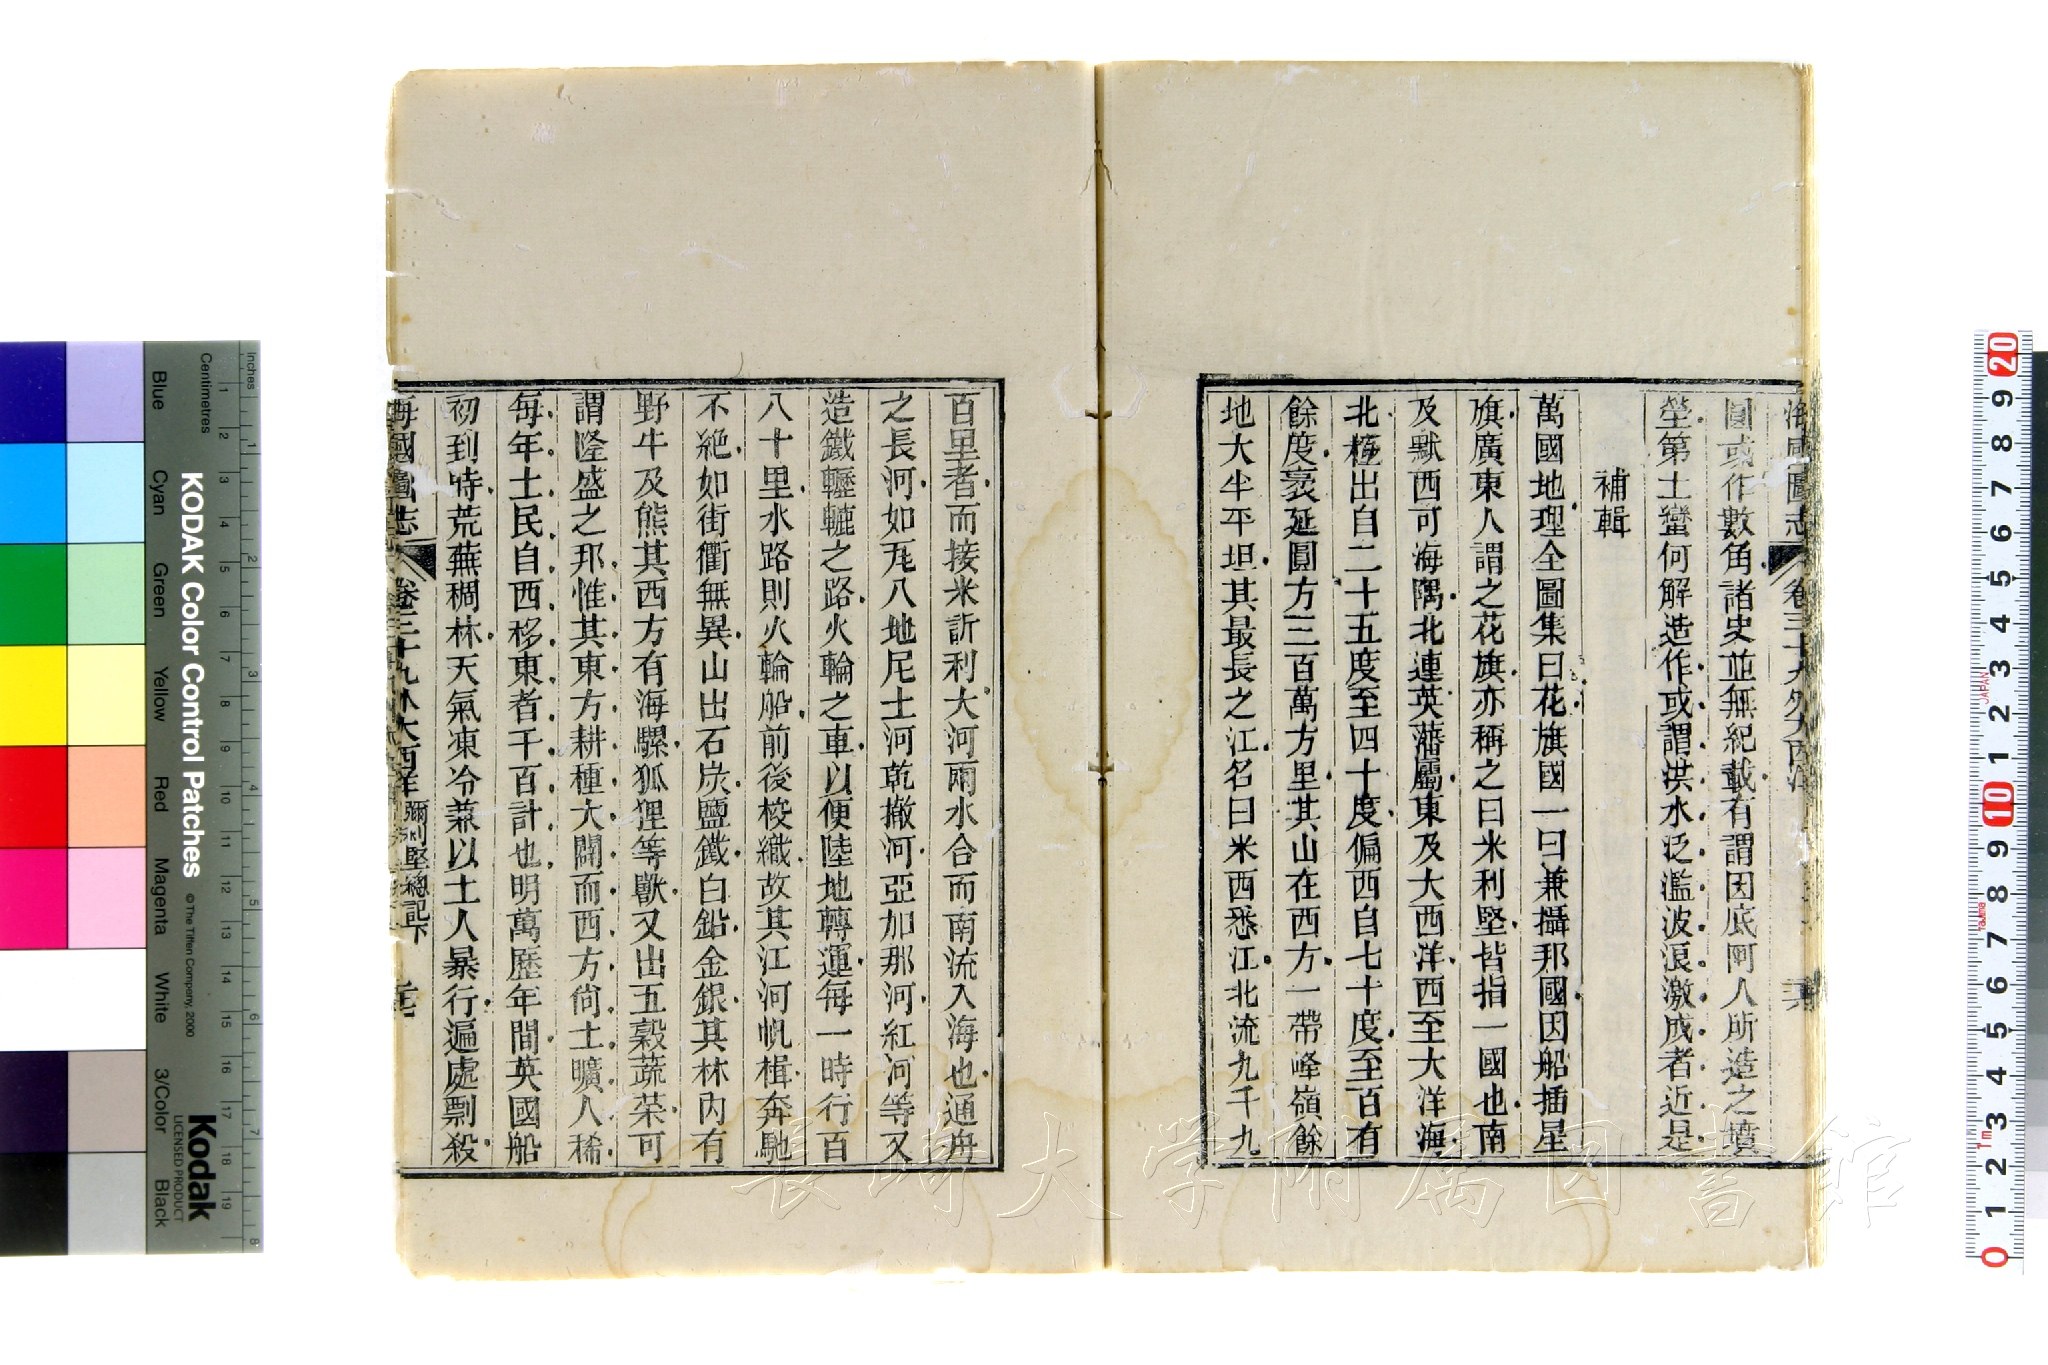 海國圖志 卷三十九 外大西洋
圓或作數角諸史並無紀載有謂因底阿人所造之墳
塋第土蠻何解造作或謂洪水泛濫波浪激成者近是
補輯
萬國地理全圖集曰花旗國一曰兼攝邦國因船插星
旗廣東人謂之花旗亦稱之曰米利堅皆指一國也南
及默西可海隅北連英藩屬東及大西洋西至大洋海
北極出自二十五度至四十度偏西自七十度至百有
餘度袤延圓方三百萬方里其山在西方一帶峰嶺餘
地大半平坦其最長之江名曰米西悉江北流九千九
百里者而接米訴利大河兩水合而南流入海也通舟
之長河如瓦八地尼士河乾撤河亞加那河紅河等又
造鐵轣轆之路火輪之車以便陸地轉運每一時行百
八十里水路則火輪船前後梭織故其江河帆楫奔馳
不絶如街衢無異山出石炭鹽鐵白鉛金銀其林內有
野牛及熊其西方有海騾狐狸等獸又出五穀蔬菜可
謂隆盛之邦惟其東方耕種大闢而西方尙土曠人稀
每年士民自西移東者千百計也明萬歷年間英國船
初到時荒蕪稠林天氣凍冷兼以土人暴行遍處剽殺
海國圖志 卷三十九 外大西洋 彌利堅總記下 三七
長崎大学附属図書館
KODAK Color Control Patches
© The Tiffen Company, 2000
Kodak
LICENSED PRODUCT
Inches
Centimetres
Blue Cyan Green Yellow Red Magenta White 3/Color Black
1 2 3 4 5 6 7 8 9 10 11 12 13 14 15 16 17 18 19
1 2 3 4 5 6 7 8
20 9 8 7 6 5 4 3 2 1 10 9 8 7 6 5 4 3 2 1 0
JAPAN
1m